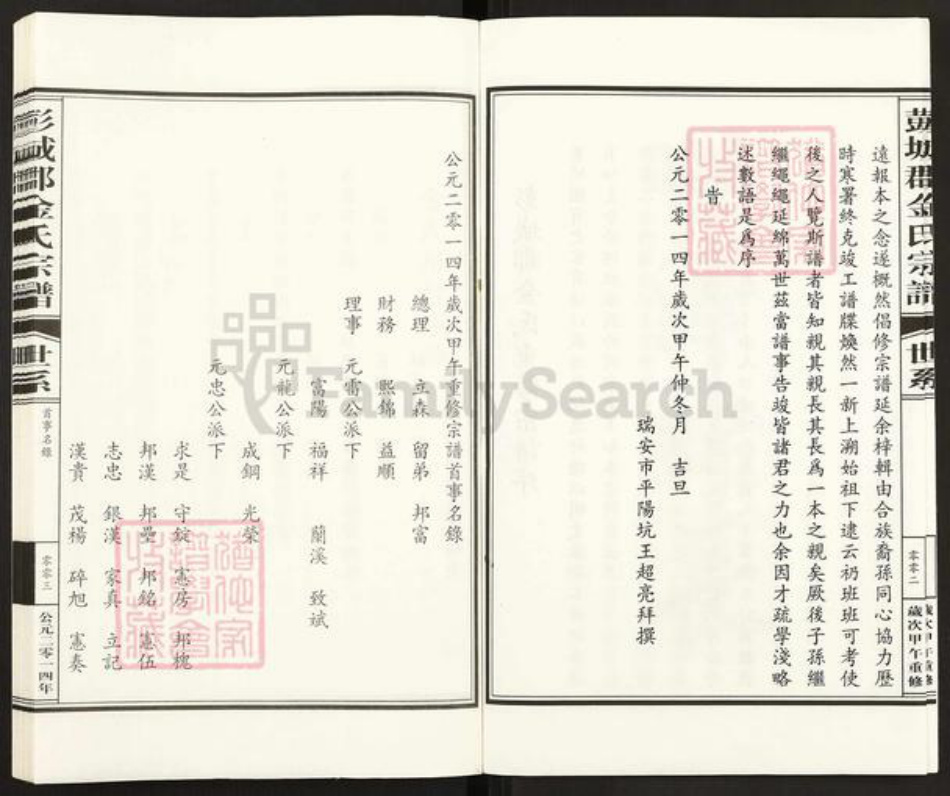 彭城郡金氏宗譜
世系
零零二
歲次甲午重修
遠報本之念遂概然倡修宗譜延余梓輯由合族裔孫同心協力歷
時寒署終克竣工譜牒煥然一新上溯始祖下逮云礽班班可考使
後之人覽斯譜者皆知親其親長其長爲一本之親矣厥後子孫繼
繼繩繩延綿萬世茲當譜事告竣皆諸君之力也余因才疏學淺略
述數語是爲序
旹
公元二零一四年歲次甲午仲冬月 吉旦
瑞安市平陽坑王超亮拜撰
公元二零一四年歲次甲午重修宗譜首事名錄
總理 立森 留弟 邦富
財務 熙錦 益順
理事 元雷公派下
富陽 福祥 蘭溪 致斌
元龍公派下
成鋼 光榮
元忠公派下
求是 守錠 憲房 邦槐
邦漢 邦壘 邦銘 憲伍
志忠 銀漢 家真 立記
漢貴 茂禓 碎旭 憲奏
彭城郡金氏宗譜
世系
首事名錄
零零三
公元二零一四年
FamilySearch